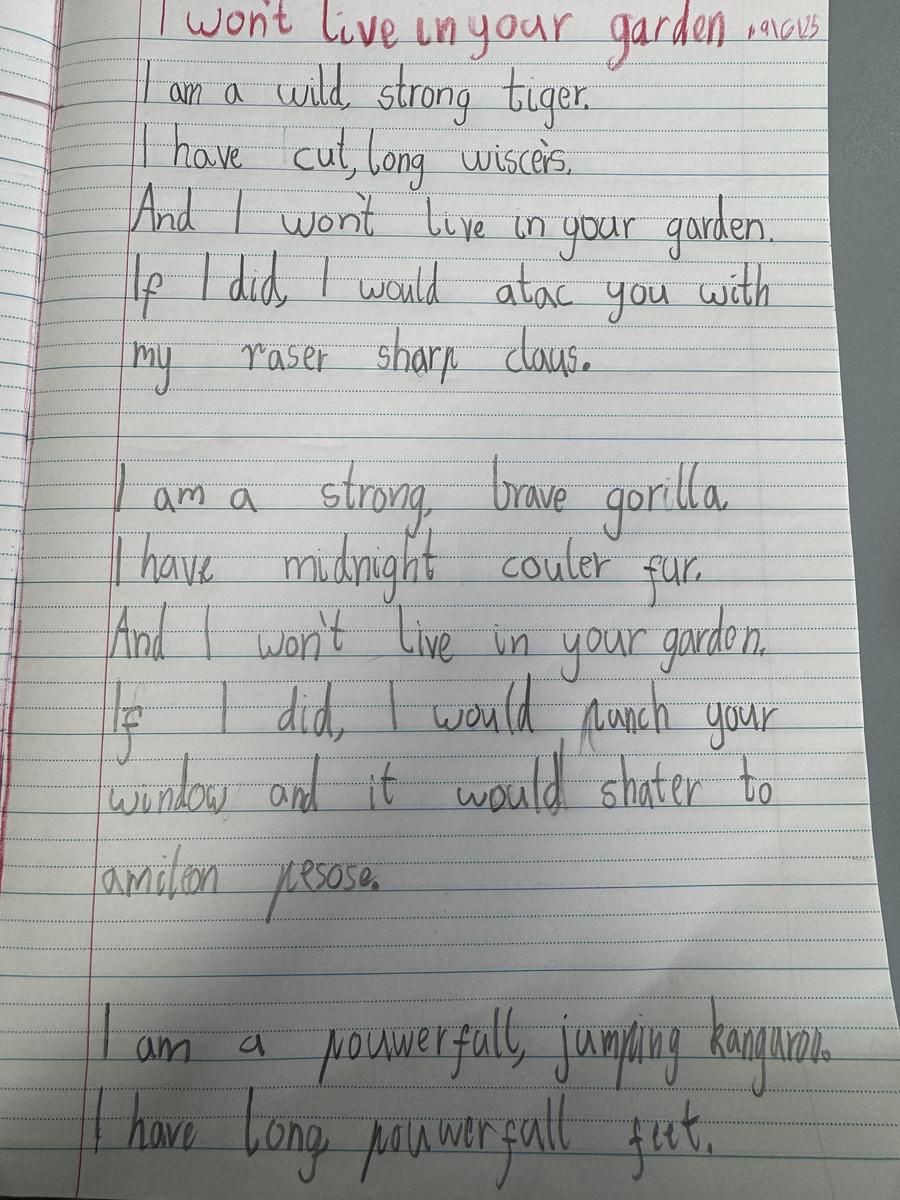 I won't live in your garden
I am a wild, strong tiger.
I have cut, long wiscers.
And I won't live in your garden.
If I did, I would atac you with
my raser sharp claus.
I am a strong, brave gorilla.
I have midnight couler fur.
And I won't live in your gardon.
If I did, I would punch your
window and it would shater to
amileon pesose.
I am a pouwerfull, jumping kanguroo.
I have long pouwerfall feet.